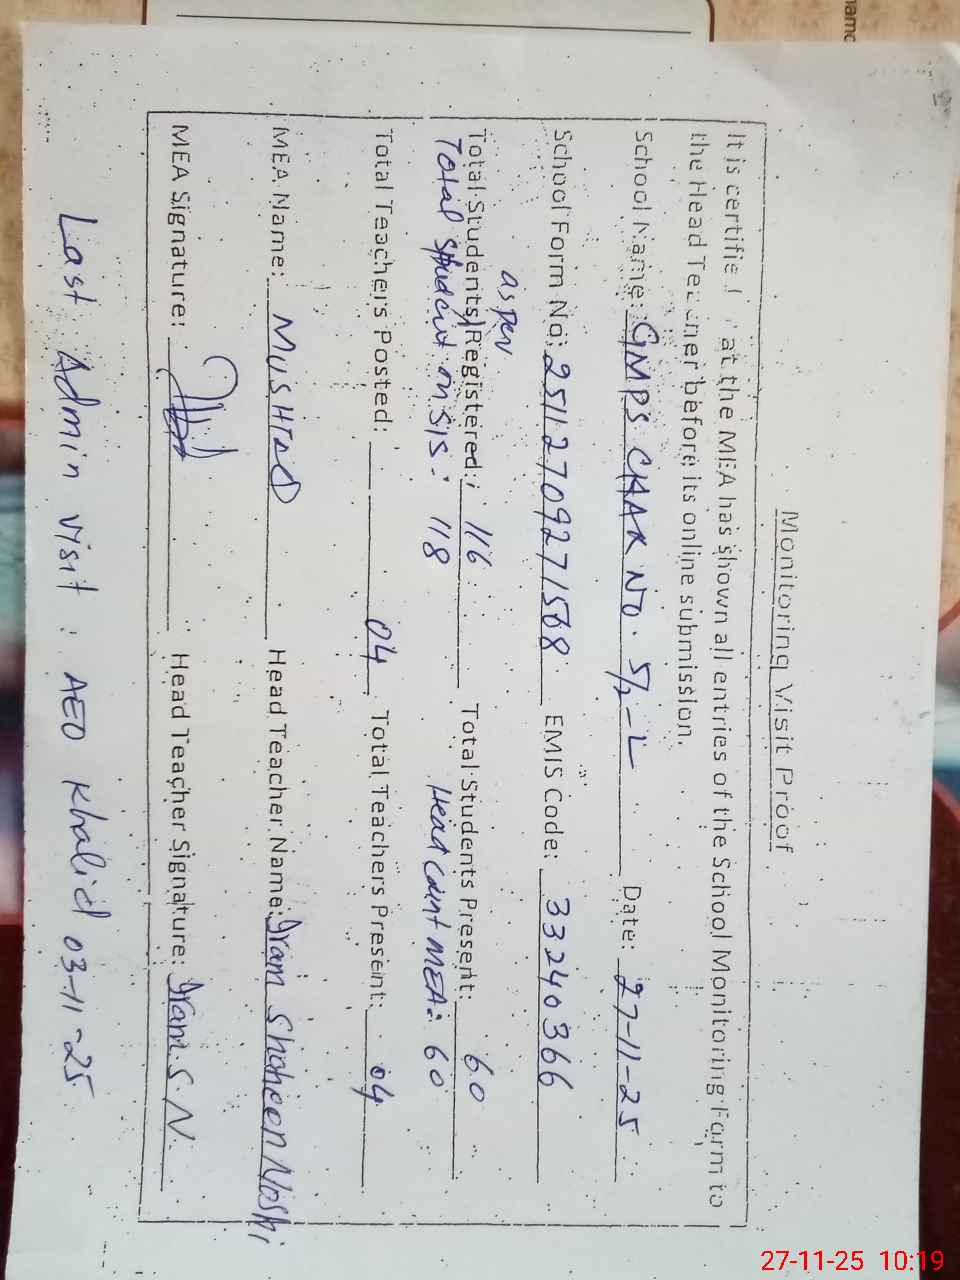 Monitoring Visit Proof
It is certified at the MEA has shown all entries of the School Monitoring Form to
the Head Teacher before its online submission.
School Name: GMPS CHAK NO. 5/2-L Date: 27-11-25
School Form No: 25112709271568 EMIS Code: 33240366
as per
Total Students Registered: 116 Total Students Present: 60
Total student on SIS: 118 Head count MEA: 60
Total Teachers Posted: 04 Total Teachers Present: 04
MEA Name: MUSHTAQ Head Teacher Name: Iram Shaheen Noshi
MEA Signature: Head Teacher Signature: Iram.S.N.
Last Admin visit : AEO Khalid 03-11-25
27-11-25 10:19